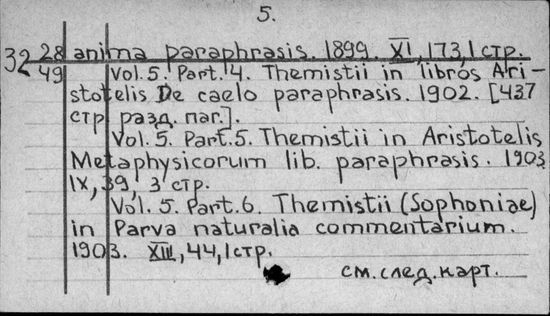 5.
32 28 anima paraphrasis. 1899. XI, 173, 1 стр.
49 Vol. 5. Part. 4. Themistii in libros Ari-
stotelis De caelo paraphrasis. 1902. [437
стр. разд. паг.].
Vol. 5. Part. 5. Themistii in Aristotelis
Metaphysicorum lib. paraphrasis. 1903
IX, 39, 3 стр.
Vol. 5. Part. 6. Themistii (Sophoniae)
in Parva naturalia commentarium.
1903. XIII, 44, 1 стр.
см. след. карт.